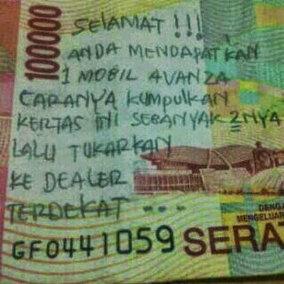 100000
SELAMAT !!!
ANDA MENDAPATKAN
1 MOBIL AVANZA
CARANYA KUMPULKAN
KERTAS INI SEBANYAK 2NYA
LALU TUKARKAN
KE DEALER
TERDEKAT ---
DENGAN
MENGELUAR
GF0441059 SERAT